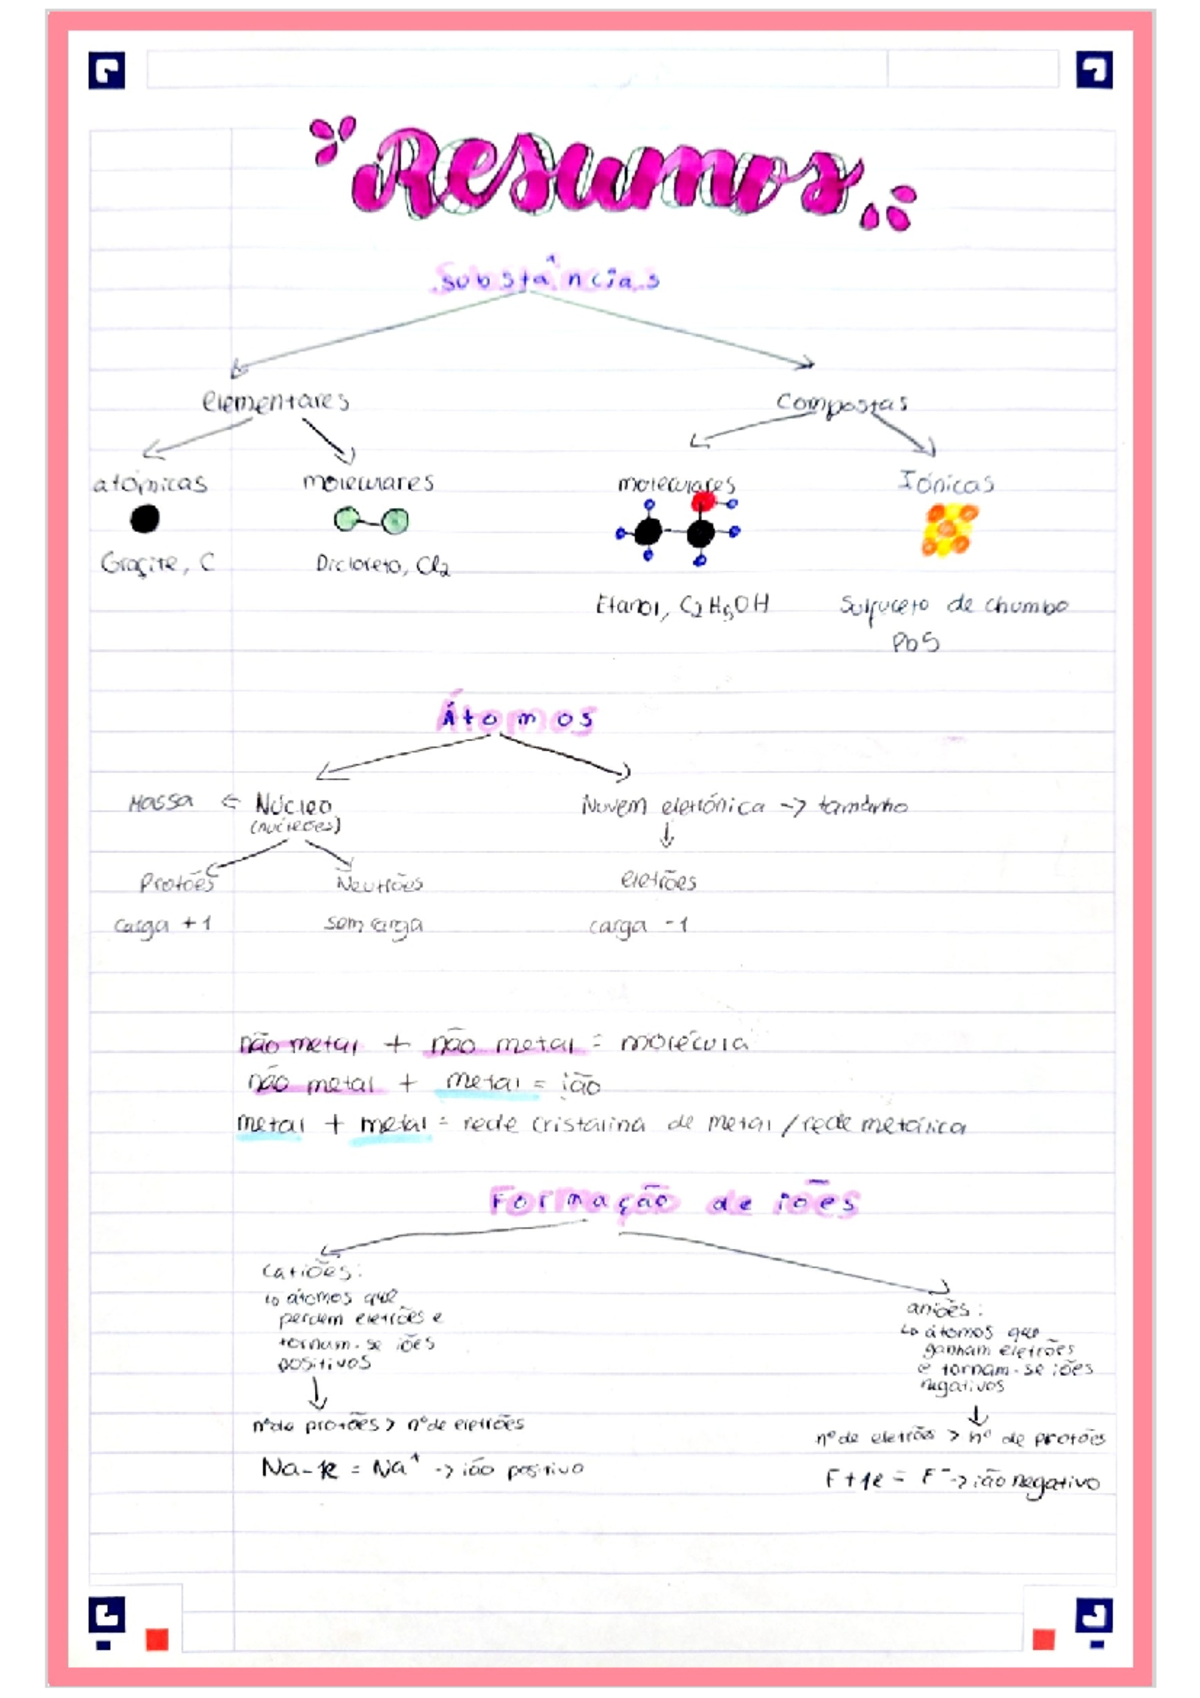 Resumos
Substâncias
elementares
Compostas
atómicas
moleculares
moleculares
Iónicas
Grafite, C
Dicloreto, Cl2
Etanol, C2H5OH
Sulfureto de chumbo
PbS
Átomos
Massa ← Núcleo
(nucleões)
Nuvem eletrónica -> tamanho
Protões
Neutrões
eletrões
carga +1
sem carga
carga -1
não metal + não metal = molécula
não metal + metal = ião
metal + metal = rede cristalina de metal / rede metálica
Formação de iões
Catiões:
↳ átomos que
perdem eletrões e
tornam-se iões
positivos
aniões:
↳ átomos que
ganham eletrões
e tornam-se iões
negativos
nº de protões > nº de eletrões
nº de eletrões > nº de protões
Na - 1e = Na⁺ -> ião positivo
F + 1e = F⁻ -> ião negativo